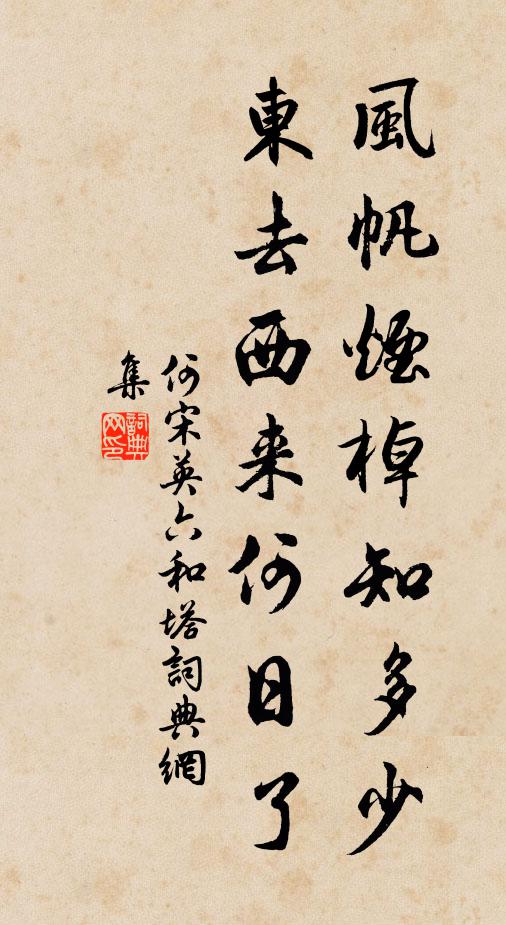 風帆煙棹知多少
東去西来何日了
何宋英六和塔詞典網
集
詞典
网印